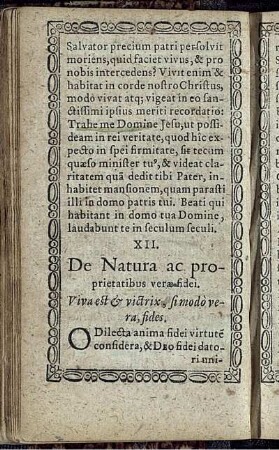 Salvator precium patri persolvit
moriens, quid faciet vivus, & pro
nobis intercedens? Vivit enim &
habitat in corde nostro Christus,
modò vivat atq; vigeat in eo san-
ctissimi ipsius meriti recordatio:
Trahe me Domine Jesu, ut possi-
deam in rei veritate, quod hîc ex-
pecto in spei firmitate, sit tecum
quæso minister tuꝰ, & videat cla-
ritatem quã dedit tibi Pater, in-
habitet mansionem, quam parasti
illi in domo patris tui. Beati qui
habitant in domo tua Domine,
laudabunt te in seculum seculi.
XII.
De Natura ac pro-
prietatibus veræ fidei.
Viva est & victrix, si modò ve-
ra, fides.
O Dilecta anima fidei virtutẽ
considera, & DEO fidei dato-
ri uni-